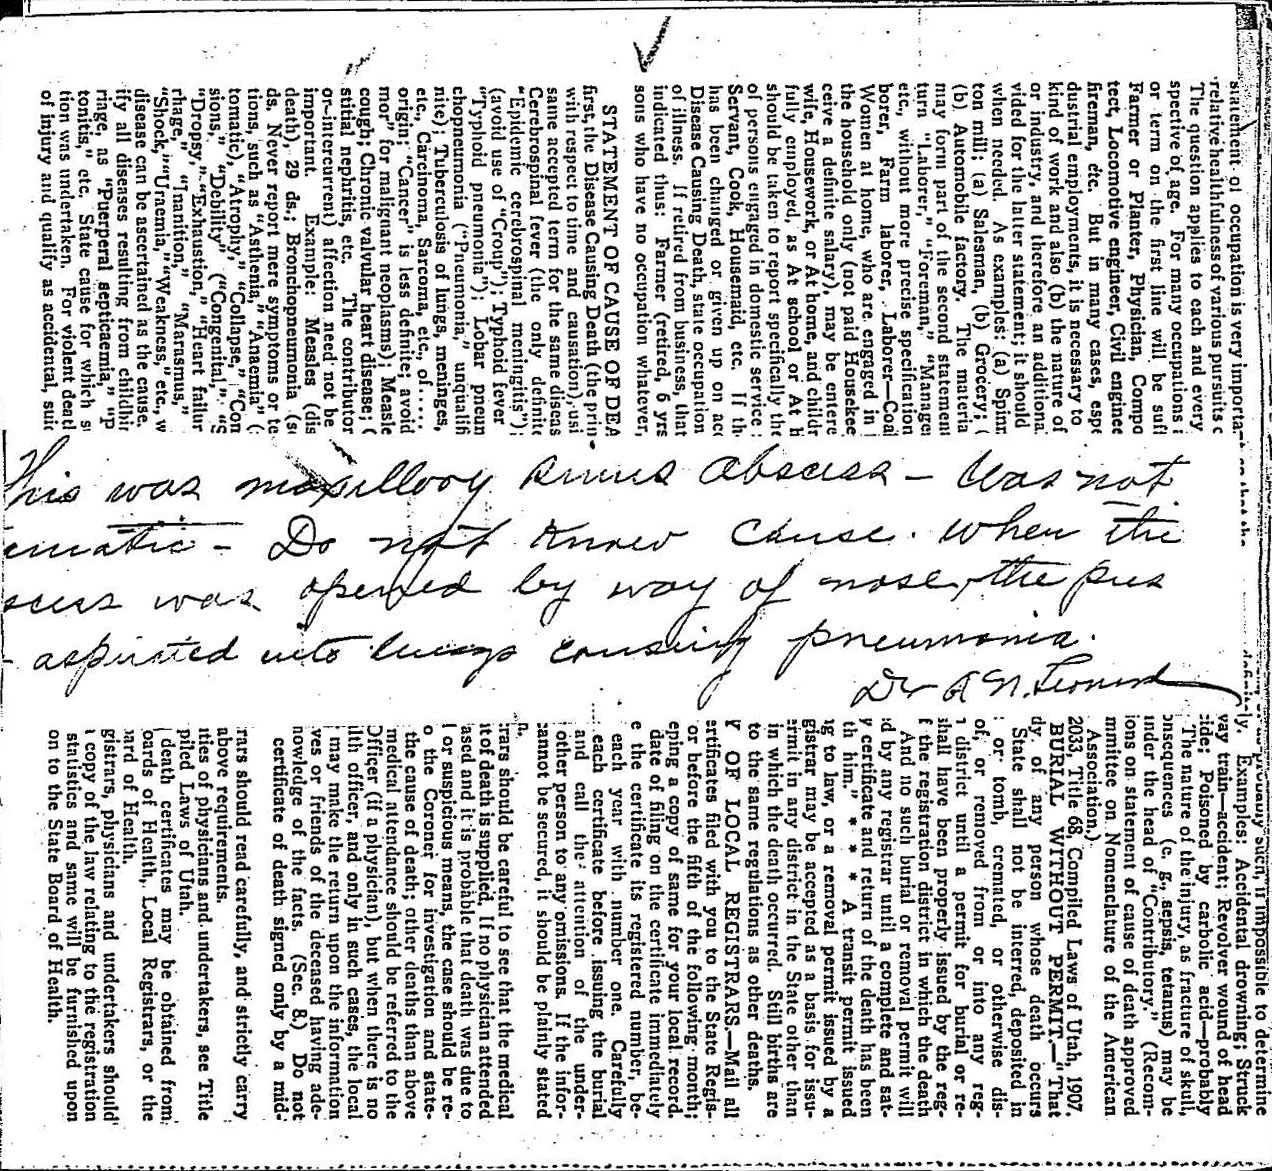 statement of occupation is very importa
relative healthfulness of various pursuits c
The question applies to each and every
spective of age. For many occupations
or term on the first line will be suf
Farmer or Planter, Physician, Compo
tect, Locomotive engineer, Civil engine
fireman, etc. But in many cases, espe
dustrial employments, it is necessary to
kind of work and also (b) the nature of
or industry, and therefore an additiona
vided for the later statement; it should
when needed. As examples: (a) Spinn
ton mill; (a) Salesman, (b) Grocery; (
(b) Automobile factory. The materia
may form part of the second statement
turn "Laborer," "Foreman," "Manage
etc., without more precise specification
borer, Farm laborer, Laborer—Coal
Women at home, who are engaged in
the household only (not paid Housekee
ceive a definite salary), may be entere
wife, Housework, or At home, and childr
fully employed, as At school or At h
should be taken to report specifically the
of persons engaged in domestic service
Servant, Cook, Housemaid, etc. If th
has been changed or given up on acc
Disease Causing Death, state occupation
of illness. If retired from business, that
indicated thus: Farmer (retired, 6 yrs
sons who have no occupation whatever,
STATEMENT OF CAUSE OF DEA
first, the Disease Causing Death (the prin
with respect to time and causation), usi
same accepted term for the same diseas
Cerebrospinal fever (the only definite
"Epidemic cerebrospinal meningitis");
(avoid use of "Croup"); Typhoid fever
"Typhoid pneumonia"); Lobar pneum
chopneumonia ("Pneumonia," unqualifi
nite); Tuberculosis of lungs, meninges,
etc., Carcinoma, Sarcoma, etc., of.....
origin; "Cancer" is less definite; avoid
mor" for malignant neoplasms); Measle
cough; Chronic valvular heart disease; (
stitial nephritis, etc. The contributor
or intercurrent) affection need not be
important. Example: Measles (dis
death), 29 ds.; Bronchopneumonia (s
ds. Never report mere symptoms or te
tions, such as "Asthenia," "Anaemia" (
tomatic), "Atrophy," "Collapse," "Con
sions," "Debility" ("Congenital," "S
"Dropsy," "Exhaustion," "Heart failur
rhage," "Inanition," "Marasmus,"
"Shock," "Uraemia," "Weakness," etc., w
disease can be ascertained as the cause.
ify all diseases resulting from childbir
riage, as "Puerperal septicaemia," "P
tonitis," etc. State cause for which s
tion was undertaken. For violent death
of injury and qualify as accidental, suic
This was maxillary sinus abscess – Was not
umatic – Do not know cause. When the
scess was opened by way of nose, the pus
– aspirated into lungs causing pneumonia.
Dr A N. Leonard
probably such, if impossible to determine
ly. Examples: Accidental drowning; Struck
vay train—accident; Revolver wound of head
cide; Poisoned by carbolic acid—probably
The nature of the injury, as fracture of skull,
onsequences (e. g., sepsis, tetanus) may be
under the head of "Contributory." (Recom-
ions on statement of cause of death approved
mmittee on Nomenclature of the American
Association.)
2033, Title 68, Compiled Laws of Utah, 1907.
BURIAL WITHOUT PERMIT.—"That
dy of any person whose death occurs
State shall not be interred, deposited in
or tomb, cremated, or otherwise dis-
of, or removed from or into any reg-
district until a permit for burial or re-
shall have been properly issued by the reg-
f the registration district in which the death
And no such burial or removal permit will
d by any registrar until a complete and sat-
y certificate and return of the death has been
th him. * * * A transit permit issued
g to law, or a removal permit issued by a
gistrar may be accepted as a basis for issu-
ermit in any district in the State other than
in which the death occurred. Still births are
to the same regulations as other deaths.
Y OF LOCAL REGISTRARS.—Mail all
ertificates filed with you to the State Regis-
or before the fifth of the following month;
eping a copy of same for your local record.
date of filing on the certificate immediately
e the certificate its registered number, be-
each year with number one. Carefully
each certificate before issuing the burial
and call the attention of the under-
other person to any omissions. If the infor-
cannot be secured, it should be plainly stated
n.
rars should be careful to see that the medical
it of death is supplied. If no physician attended
ased and it is probable that death was due to
l or suspicious means, the case should be re-
o the Coroner for investigation and state-
the cause of death; other deaths than above
medical attendance should be referred to the
Officer (if a physician), but when there is no
lth officer, and only in such cases, the local
may make the return upon the information
ves or friends of the deceased having ade-
nowledge of the facts. (Sec. 8.) Do not
certificate of death signed only by a mid-
rars should read carefully, and strictly carry
above requirements.
ities of physicians and undertakers, see Title
piled Laws of Utah.
death certificates may be obtained from
oards of Health, Local Registrars, or the
ard of Health.
gistrars, physicians and undertakers should
copy of the law relating to the registration
statistics and same will be furnished upon
on to the State Board of Health.